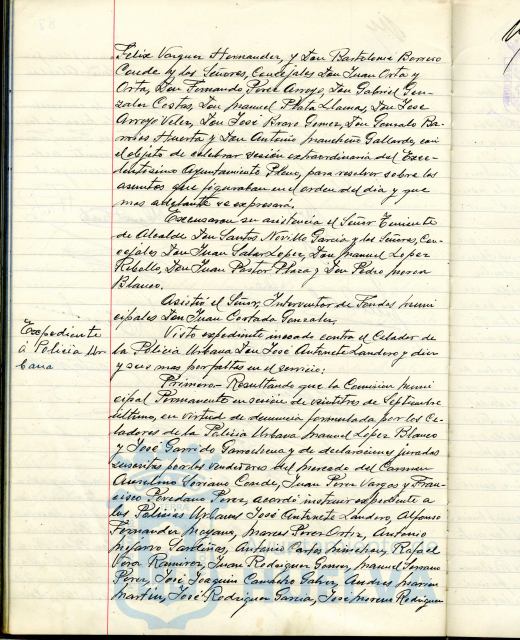 Félix Vazquez Hernandez, y Don Bartolomé Borrero
Conde y los Señores, Concejales Don Juan Orta y
Orta, Don Fernando Perez Arroyo, Don Gabriel Gon-
zalez Costas, Don Manuel Plata Llamas, Don José
Arroyo Velez, Don José Bravo Gomez, Don Gonzalo Ba-
rrios Huerta y Don Antonio Mancheño Gallardo, con
el objeto de celebrar sesión extraordinaria del Exce-
lentísimo Ayuntamiento Pleno, para resolver sobre los
asuntos que figuraban en el orden del dia y que
mas adelante se expresará.
Excusaron su asistencia el Señor Teniente
de Alcalde Don Santos Novillo Garcia y los Señores, Con-
cejales Don Juan Salas Lopez, Don Manuel Lopez
Rebollo, Don Juan Pastor Plaza y Don Pedro Mora
Blanco.
Asistió el Señor, Interventor de Fondos muni
cipales Don Juan Cortada Gonzalez.
Expediente
á Policia Ur
bana
Visto expediente incoado contra el Celador de
la Policia Urbana Don José Antunete Landero y diez
y seis mas por faltas en el servicio:
Primero - Resultando que la Comisión muni
cipal Permanente en sesión de veintitres de Septiembre
último, en virtud de denuncia formulada por los Ce-
ladores de la Policia Urbana Manuel López Blanco
y José Garrido Garrochena y de declaraciones juradas
suscritas por los vendedores del mercado del Carmen
Anselmo Soriano Conde, Juan Perez Vargas y Fran-
cisco Peredano Perez, acordó instruir expediente a
los Policias Urbanos José Antunete Landero, Alfonso
Fernandez Moyano, Marcos Perez Ortiz, Antonio
Sardiñas, Antonio Carlos Rafael
Vera Ramirez, Juan Rodriguez Gomez, Manuel Serrano
Perez, José Joaquin Camacho Andres
Martin, José Rodriguez Garcia, José Moreno Rodriguez